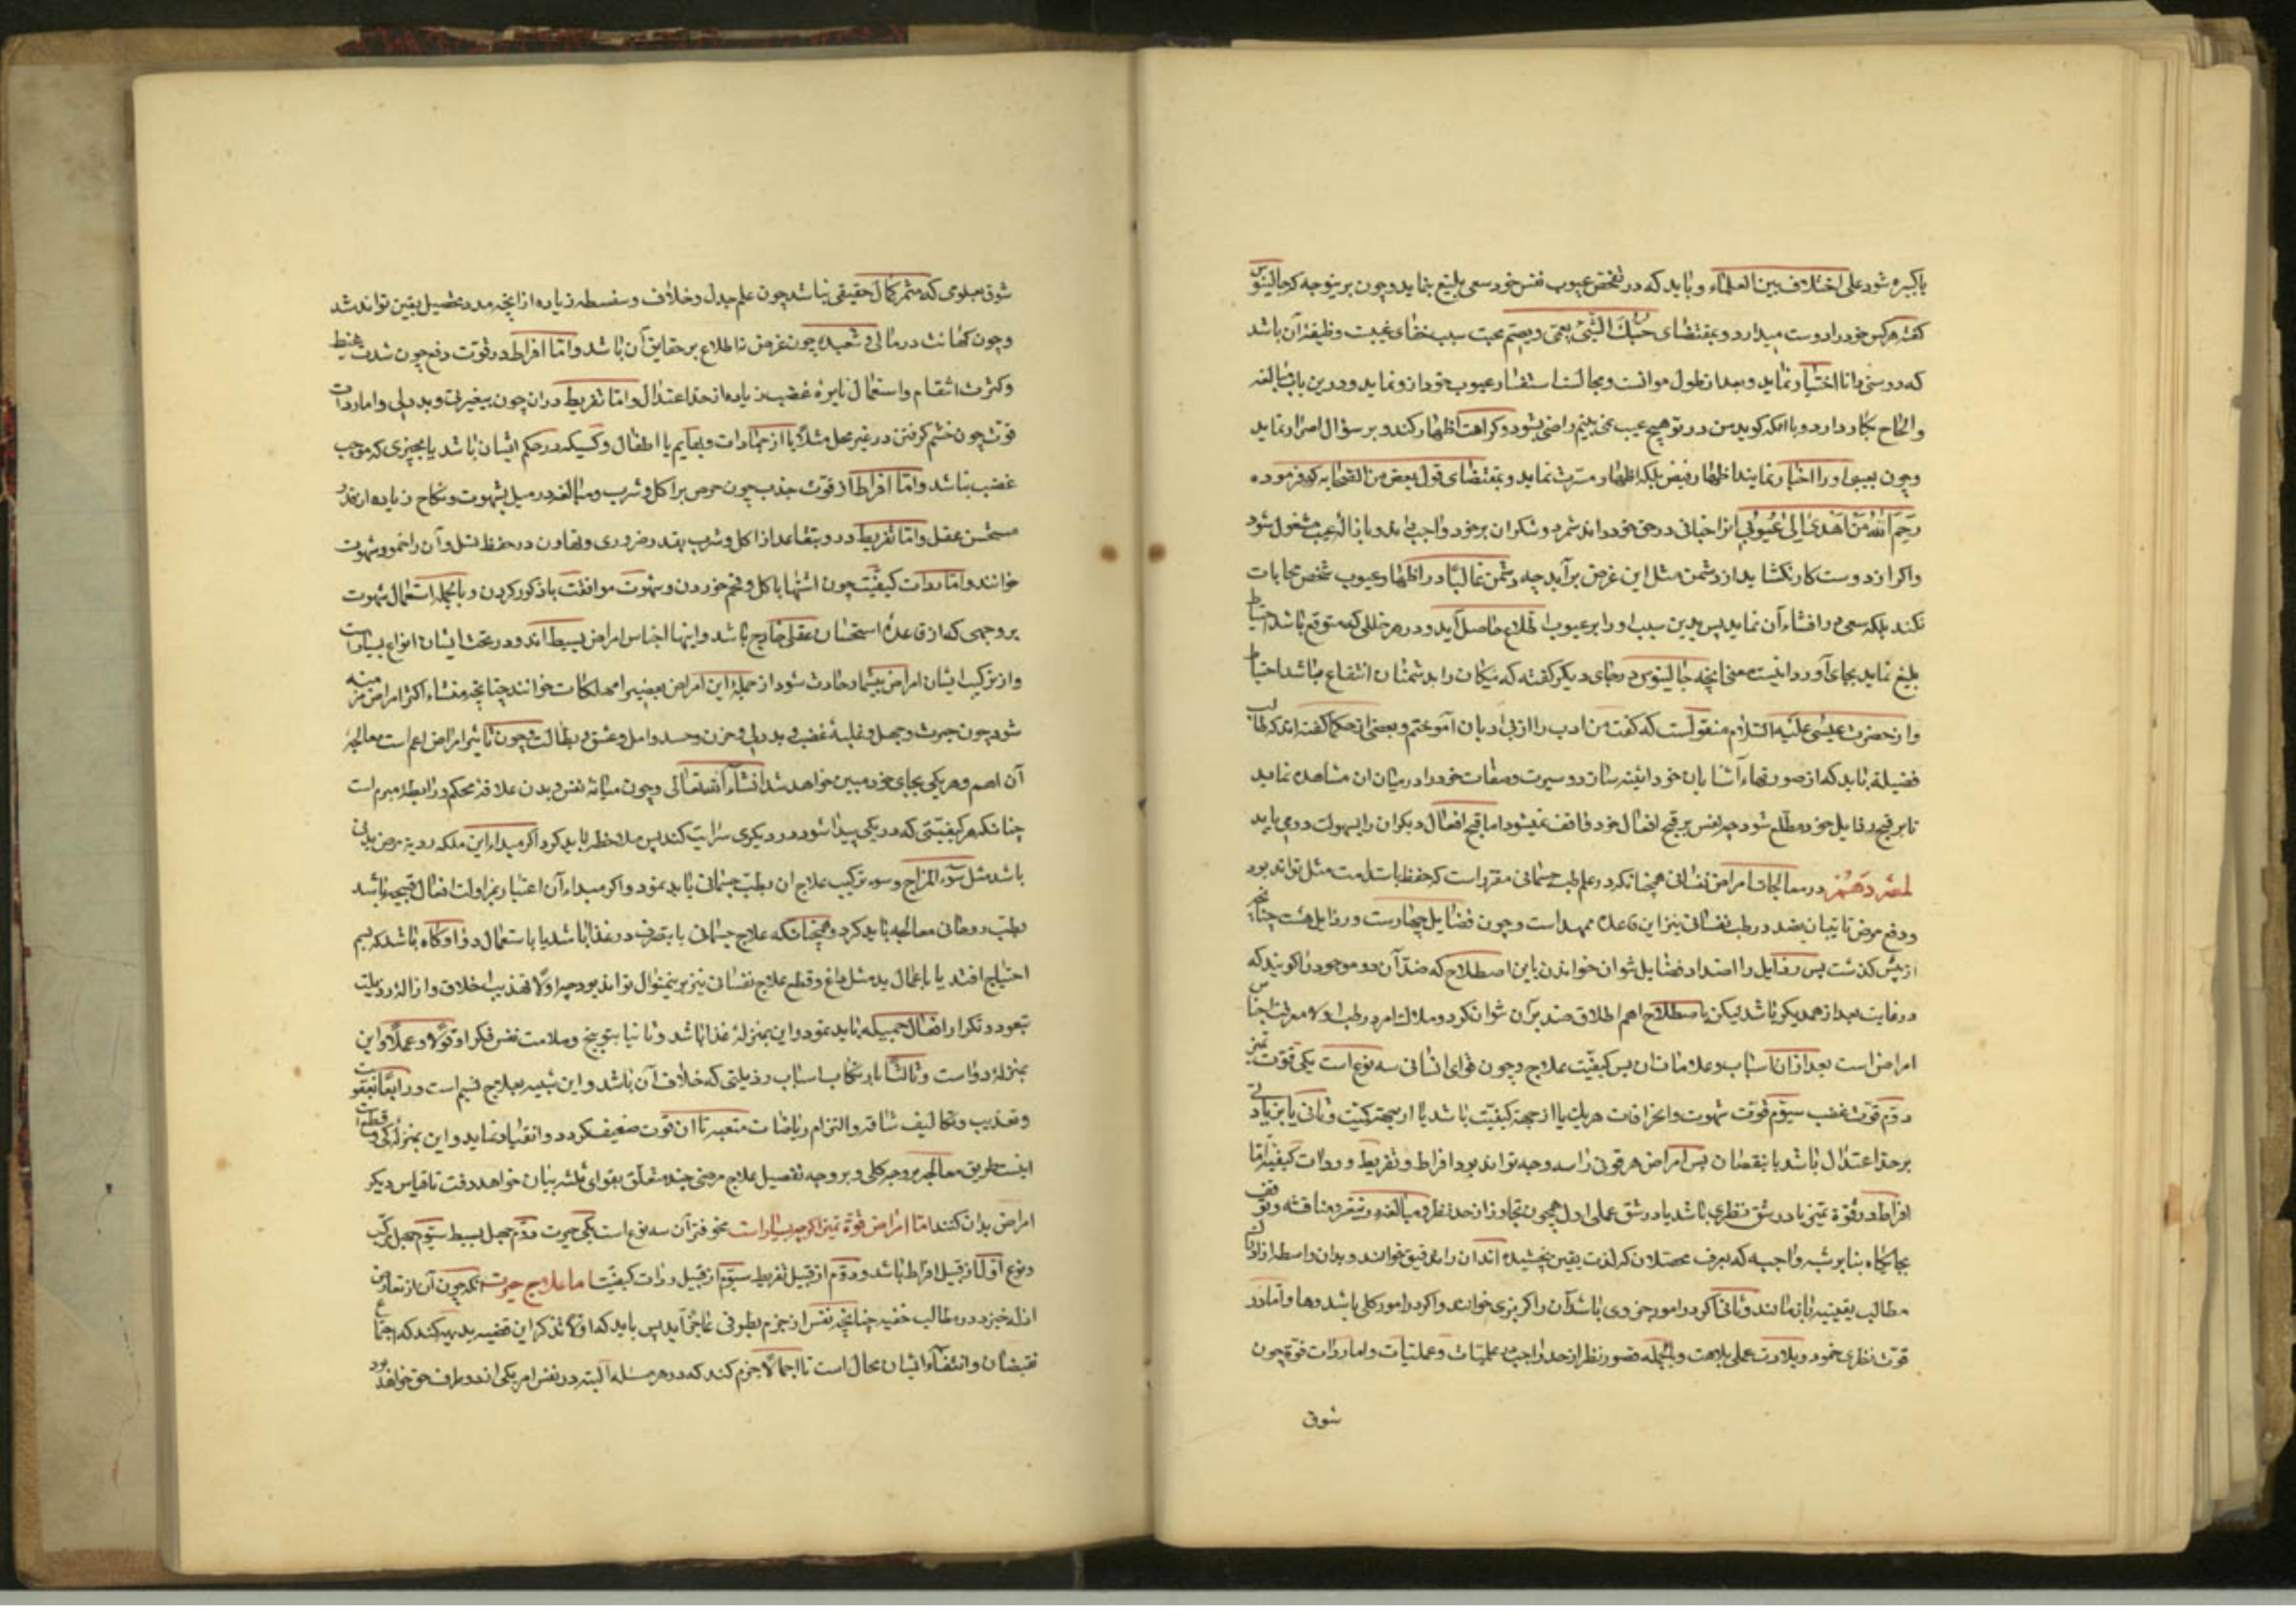 یا کبیره شود علی اختلاف بین العلماء و باید که در تفحص عیوب نفس خود سعی بلیغ نماید و چون برینوجه که جالینوس
گفته هر کس خود را دوست میدارد و بمقتضای حبک الشئ یعمی و یصم محبت سبب خفای عیبست وظیفه آن باشد
که دوستی دانا اختیار نماید و بعد از طول موانست و مجالست استفسار عیوب خود ازو نماید و درین باب مبالغه
و الحاح بکار دارد و با آنکه کوید من در تو هیچ عیب نمی بینم راضی نشود و کراهت اظهار کند و بر سؤال اصرار نماید
و چون بعیبی او را اخبار نمایند اظهار قبض بلکه اظهار مسرت نماید و بمقتضای قول بعض من الصحابه که فرموده
رحم الله من اهدی الی عیوبی انرا احسانی در حق خود داند شمرد و شکران بر خود واجب داند و بازاله عیب مشغول شود
و اکر از دوست کار نکشاید از دشمن مثل این غرض برآید چه دشمن غالبا در اظهار عیوب شخص محابات
نکند بلکه سعی در افشاء آن نماید پس بدین سبب او را بر عیوب اطلاع حاصل آید و در هر خللی که متوقع باشد احتیاط
بلیغ نماید بجای آورد اینست معنی آنچه جالینوس در جای دیکر کفته که نیکان را بدشمنان انتفاع میباشد احتیاط
و از حضرت عیسی علیه السلام منقولست که کفت من ادب را از بی ادبان آموختم و بعضی از حکما کفته اند که طالب
فضیلة باید که از صورتهاء آشنایان خود آینه سازد و سیرت و صفات خود را در میان ان مشاهده نماید
تا بر قبح رذایل خود مطلع شود چه نفس بر قبح افعال خود واقف نمیشود اما قبح افعال دیکران را بسهولت درمی یابد
لمعه دهم در معالجات امراض نفسانی همچنانکه در علم طب جسمانی مقرر است که حفظ باستدامت مثل تواند بود
و دفع مرض تا بتبیان بضد در طب نفسانی نیز این قاعده ممهد است و چون فضایل چهارست و رذایل هشت چنانچه
از پیش کذشت پس رذایل را اضداد فضایل نتوان خواندن باین اصطلاح که ضد آن دو موجود را کویند که
در غایت بعد از همدیکر باشد لیکن باصطلاح اهم اطلاق ضد بر آن توان کرد و ملاک امر در طب اولا معرفت اجناس
امراض است بعد از آن اسباب و علامات ان پس کیفیت علاج و چون قوای انسانی سه نوع است یکی قوت تمیز
دوم قوت غضب سیوم قوت شهوت و انحرافات هر یک یا از جهة کیفیت باشد یا از جهة کمیت و ثانی یا بزیادتی
بر حد اعتدال باشد یا بنقصان پس امراض هر قوتی را سه وجه تواند بود افراط و تفریط و رداءت کیفیة اما
افراط در قوة تمیز یا در شق نظری باشد یا در شق عملی اول همچون تجاوز از حد نظر و مبالغه در تنقر و مناقشه و توقف
بجایکاه بنا بر شبه واجبه که بعرف محصلان که لذت یقین نچشیده اند ان را تدقیق خوانند و بدان واسطه از ادراک
مطالب یقینیه بازمانند و ثانی اکر در امور جزوی باشد آن را کربزی خوانند و اکر در امور کلی باشد دها و اما در
قوت نظری خمود و بلادت عملی بلاهت و بالجمله قصور نظر از حد واجب در علمیات و عملیات و اما رداءت قوة چون
شوق
شوق بعلومی که مثمر کمال حقیقی نباشد چون علم جدل و خلاف و سفسطه زیاده از انچه مدد تحصیل یقین تواند شد
و چون کهانت و رمالی و شعبده چون غرض نه اطلاع بر حقایق آن باشد و اما افراط در قوت دفع چون شدت غیظ
و کثرت انتقام و استعمال نایره غضب زیاده از حد اعتدال و اما تفریط در ان چون بیغیرتی و بددلی و اما رداءت
قوت چون خشم کرفتن در غیر محل مثلا با از جمادات و بهایم یا اطفال و کسیکه در حکم ایشان باشد یا بچیزی که موجب
غضب نباشد و اما افراط از قوت جذب چون حرص بر اکل و شرب و مبالغه در میل بشهوت و نکاح زیاده از قدر
مستحسن عقل و اما تفریط در و تقاعد از اکل و شرب بقدر ضروری و تهاون در حفظ نسل و آن را خمود شهوت
خوانند و اما رداءت کیفیت چون اشتها باکل و فحم خوردن و شهوت مواقعت با ذکور کردن و بالجمله استعمال شهوت
بر وجهی که از قاعده استحسان عقلی خارج باشد و اینها اجناس امراض بسیط اند و در تحت ایشان انواع بسیار است
و از ترکیب ایشان امراض بیشمار حادث شود از جمله این امراض بعضی را مهلکات خوانند چنانچه منشاء اکثر امراض مزمنه
شود چون حیرت و جهل و غلبه غضب و بددلی و حزن و حسد و امل و عشق و بطالت و چون تاثیر امراض اعم است معالجه
آن اهم و هر یکی بجای خود مبین خواهد شد انشاءالله تعالی و چون میانه نفس و بدن علاقه محکم و رابطه مبرم است
چنانکه هر کیفیتی که در یکی پیدا شود در دیکری سرایت کند پس ملاحظه باید کرد اکر مبداء این ملکه ردیه مرض بدنی
باشد مثل سوء المزاج و سوء ترکیب علاج ان بطب جسمانی باید نمود و اکر مبداء آن اعتبار بمزاولت افعال قبیحه باشد
بطب روحانی معالجه باید کرد و همچنانکه علاج جسمانی یا بتصرف در غذا باشد یا باستعمال دوا و کاه باشد که بسم
احتیاج افتد یا باعمال ید مثل داغ و قطع علاج نفسانی نیز برینمنوال تواند بود چه اولا تهذیب اخلاق و ازاله رذیلت
بتعود و تکرار افعال جمیله باید نمود و این بمنزله غذا باشد و ثانیا بتوبیخ و ملامت نفس فکرا و قولا و عملا و این
بمنزله دوا است و ثالثا بارتکاب اسباب رذیلتی که خلاف آن باشد و این شبیه بعلاج سم است و رابعا بعقوبت
و تعذیب و تکالیف شاقه و التزام ریاضات متعبه تا ان قوت ضعیف کردد و انقیاد نماید و این بمنزله کی و قطعست
اینست طریق معالجه بر وجه کلی و بر وجه تفصیل علاج مرضی چند متعلق بقوای ثلثه بیان خواهد رفت تا قیاس دیکر
امراض بدان کنند اما امراض قوة تمیز اکرچه بسیار است مخوفتر آن سه نوع است یکی حیرت دوم جهل بسیط سیوم جهل مرکب
و نوع اول از قبیل افراط باشد و دوم از قبیل تفریط سیوم از قبیل رداءت کیفیت اما علاج حیرت آنکه چون آن از تعارض
ادله خیزد در مطالب خفیه چنانچه نفس از جزم بطرفی عاجز آید پس باید که اولا تذکر این قضیه بدیهیه کند که اجتماع
نقیضان و انتفاء ایشان محال است تا اجمالا جزم کند که در هر مسئله البته در نفس امر یکی از دو طرف حق خواهد بود